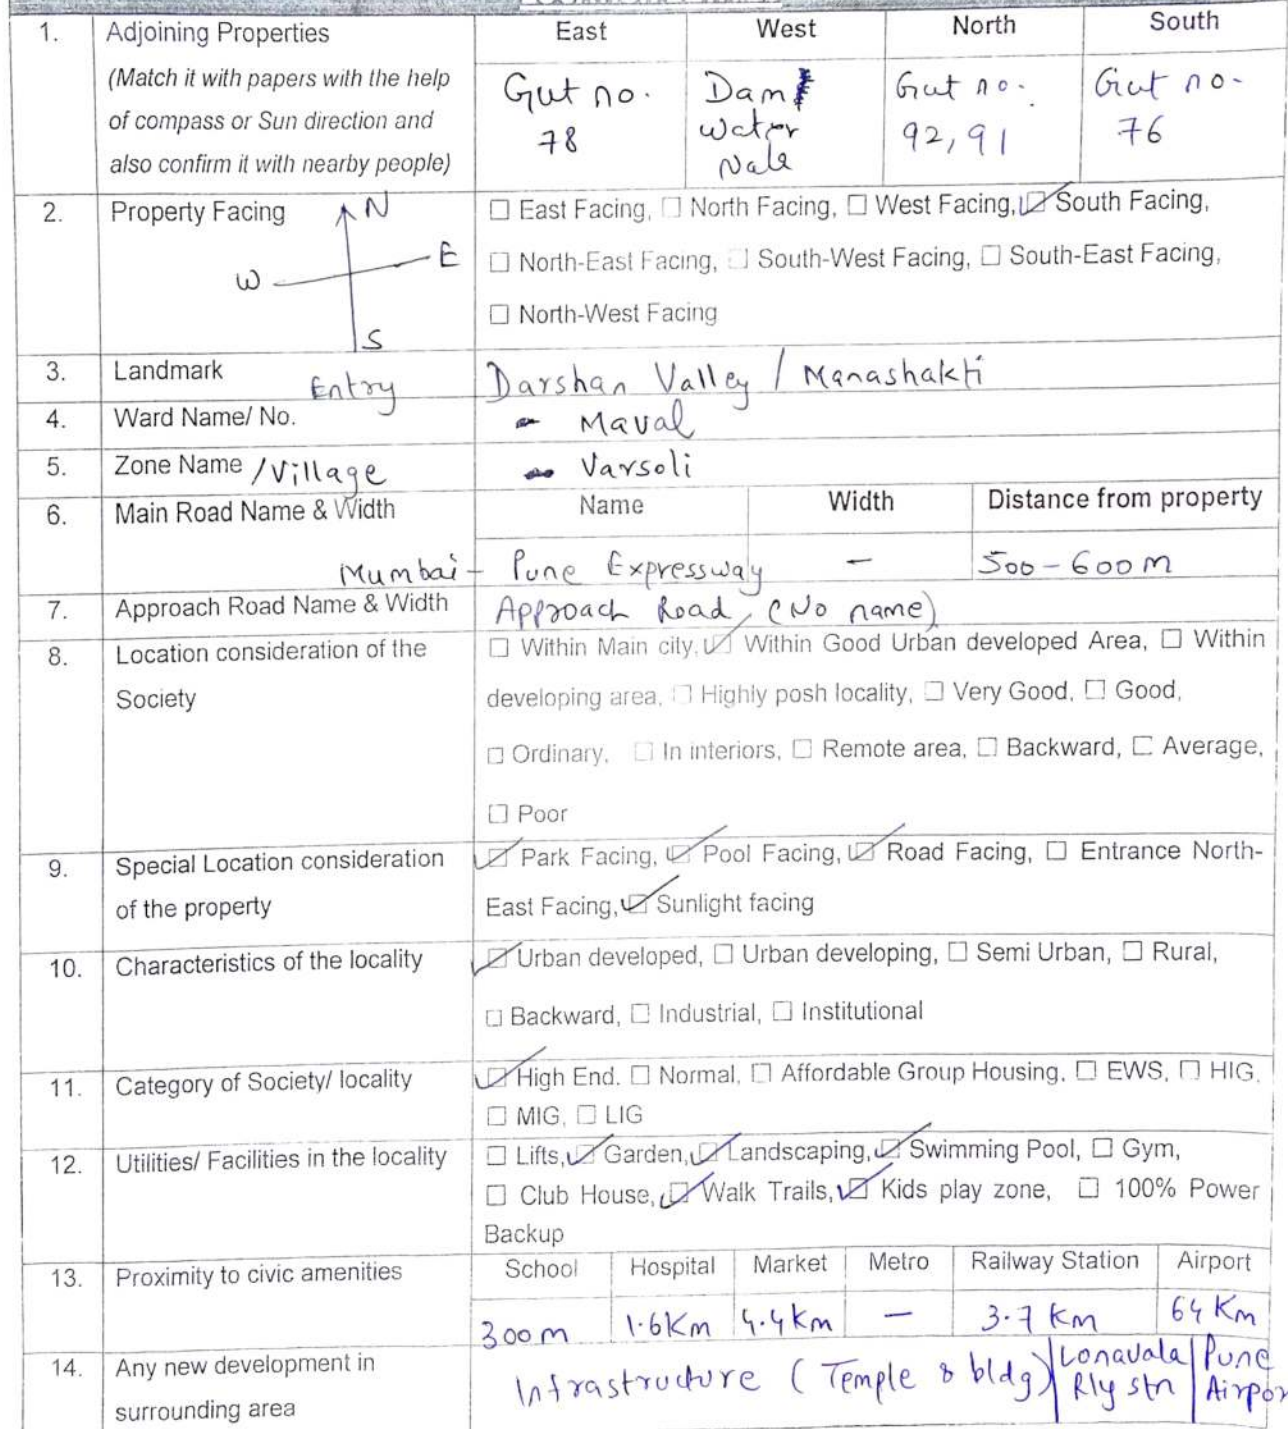 1. Adjoining Properties East West North South
(Match it with papers with the help of compass or Sun direction and also confirm it with nearby people)
Gut no. 78
Dam water Nala
Gut no. 92, 91
Gut no- 76
2. Property Facing
N
E
W
S
☐ East Facing, ☐ North Facing, ☐ West Facing, ☑ South Facing,
☐ North-East Facing, ☐ South-West Facing, ☐ South-East Facing,
☐ North-West Facing
3. Landmark Entry Darshan Valley / Manashakti
4. Ward Name/ No. - Maval
5. Zone Name /Village - Varsoli
6. Main Road Name & Width Name Width Distance from property
Mumbai - Pune Expressway — 500-600m
7. Approach Road Name & Width Approach Road (No name)
8. Location consideration of the Society
☐ Within Main city, ☑ Within Good Urban developed Area, ☐ Within
developing area, ☐ Highly posh locality, ☐ Very Good, ☐ Good,
☐ Ordinary, ☐ In interiors, ☐ Remote area, ☐ Backward, ☐ Average,
☐ Poor
9. Special Location consideration of the property
☑ Park Facing, ☑ Pool Facing, ☑ Road Facing, ☐ Entrance North-
East Facing, ☑ Sunlight facing
10. Characteristics of the locality
☑ Urban developed, ☐ Urban developing, ☐ Semi Urban, ☐ Rural,
☐ Backward, ☐ Industrial, ☐ Institutional
11. Category of Society/ locality
☑ High End. ☐ Normal, ☐ Affordable Group Housing, ☐ EWS, ☐ HIG,
☐ MIG, ☐ LIG
12. Utilities/ Facilities in the locality
☐ Lifts, ☑ Garden, ☑ Landscaping, ☑ Swimming Pool, ☐ Gym,
☐ Club House, ☑ Walk Trails, ☑ Kids play zone, ☐ 100% Power
Backup
13. Proximity to civic amenities School Hospital Market Metro Railway Station Airport
300m 1.6Km 4.4km — 3.7 Km 64 Km
Lonavala Rly stn
Pune Airpor
14. Any new development in surrounding area
Infrastructure (Temple & bldg)